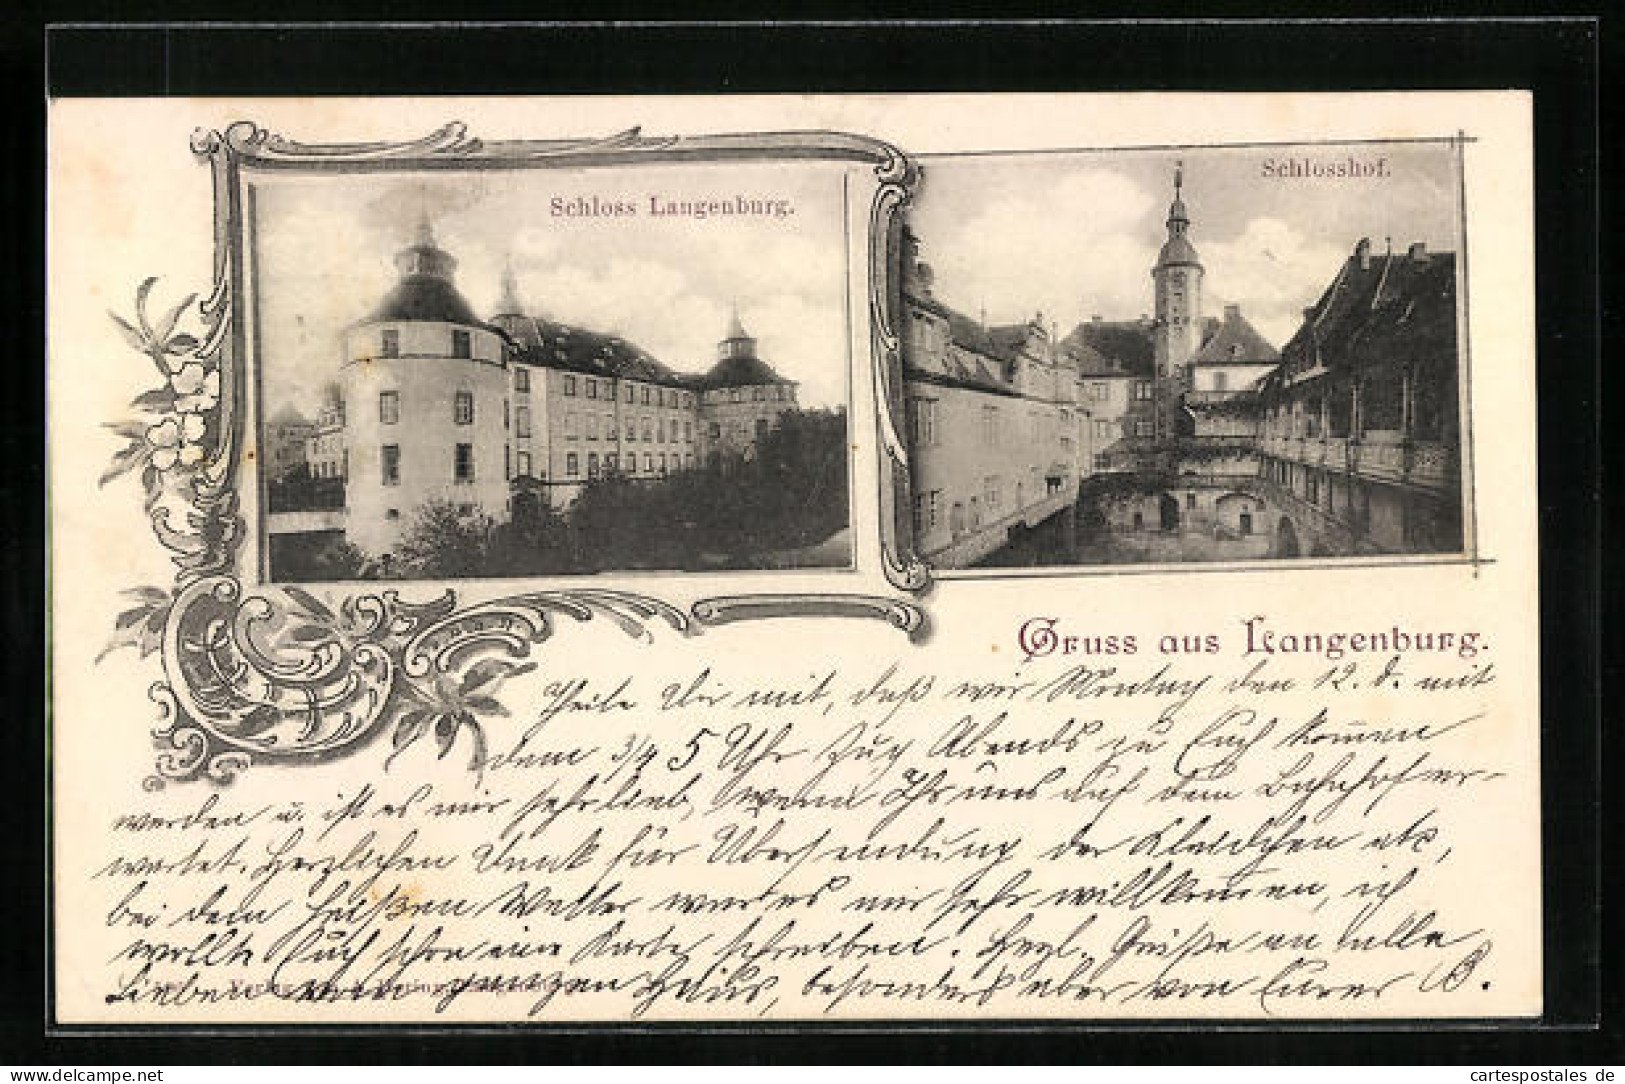 Schloss Langenburg.
Schlosshof.
Gruss aus Langenburg.
Theile Dir mit, daß wir Montag den 12. d. mit
dem 3/4 5 Uhr Zug Abends zu Euch kom̅en
werden u. ist es mir sehr lieb, wenn Ihr uns auf dem Bahnhof er-
wartet. Herzlichen Dank für Übersendung der Kleidchen etc,
bei dem heißen Wetter war es mir sehr willkom̅en, ich
wollte Euch schon eine Karte schreiben. Herzl. Grüße an alle
Lieben vom ganzen Haus, besonders aber von Eurer B.
Verlag
cartespostales de